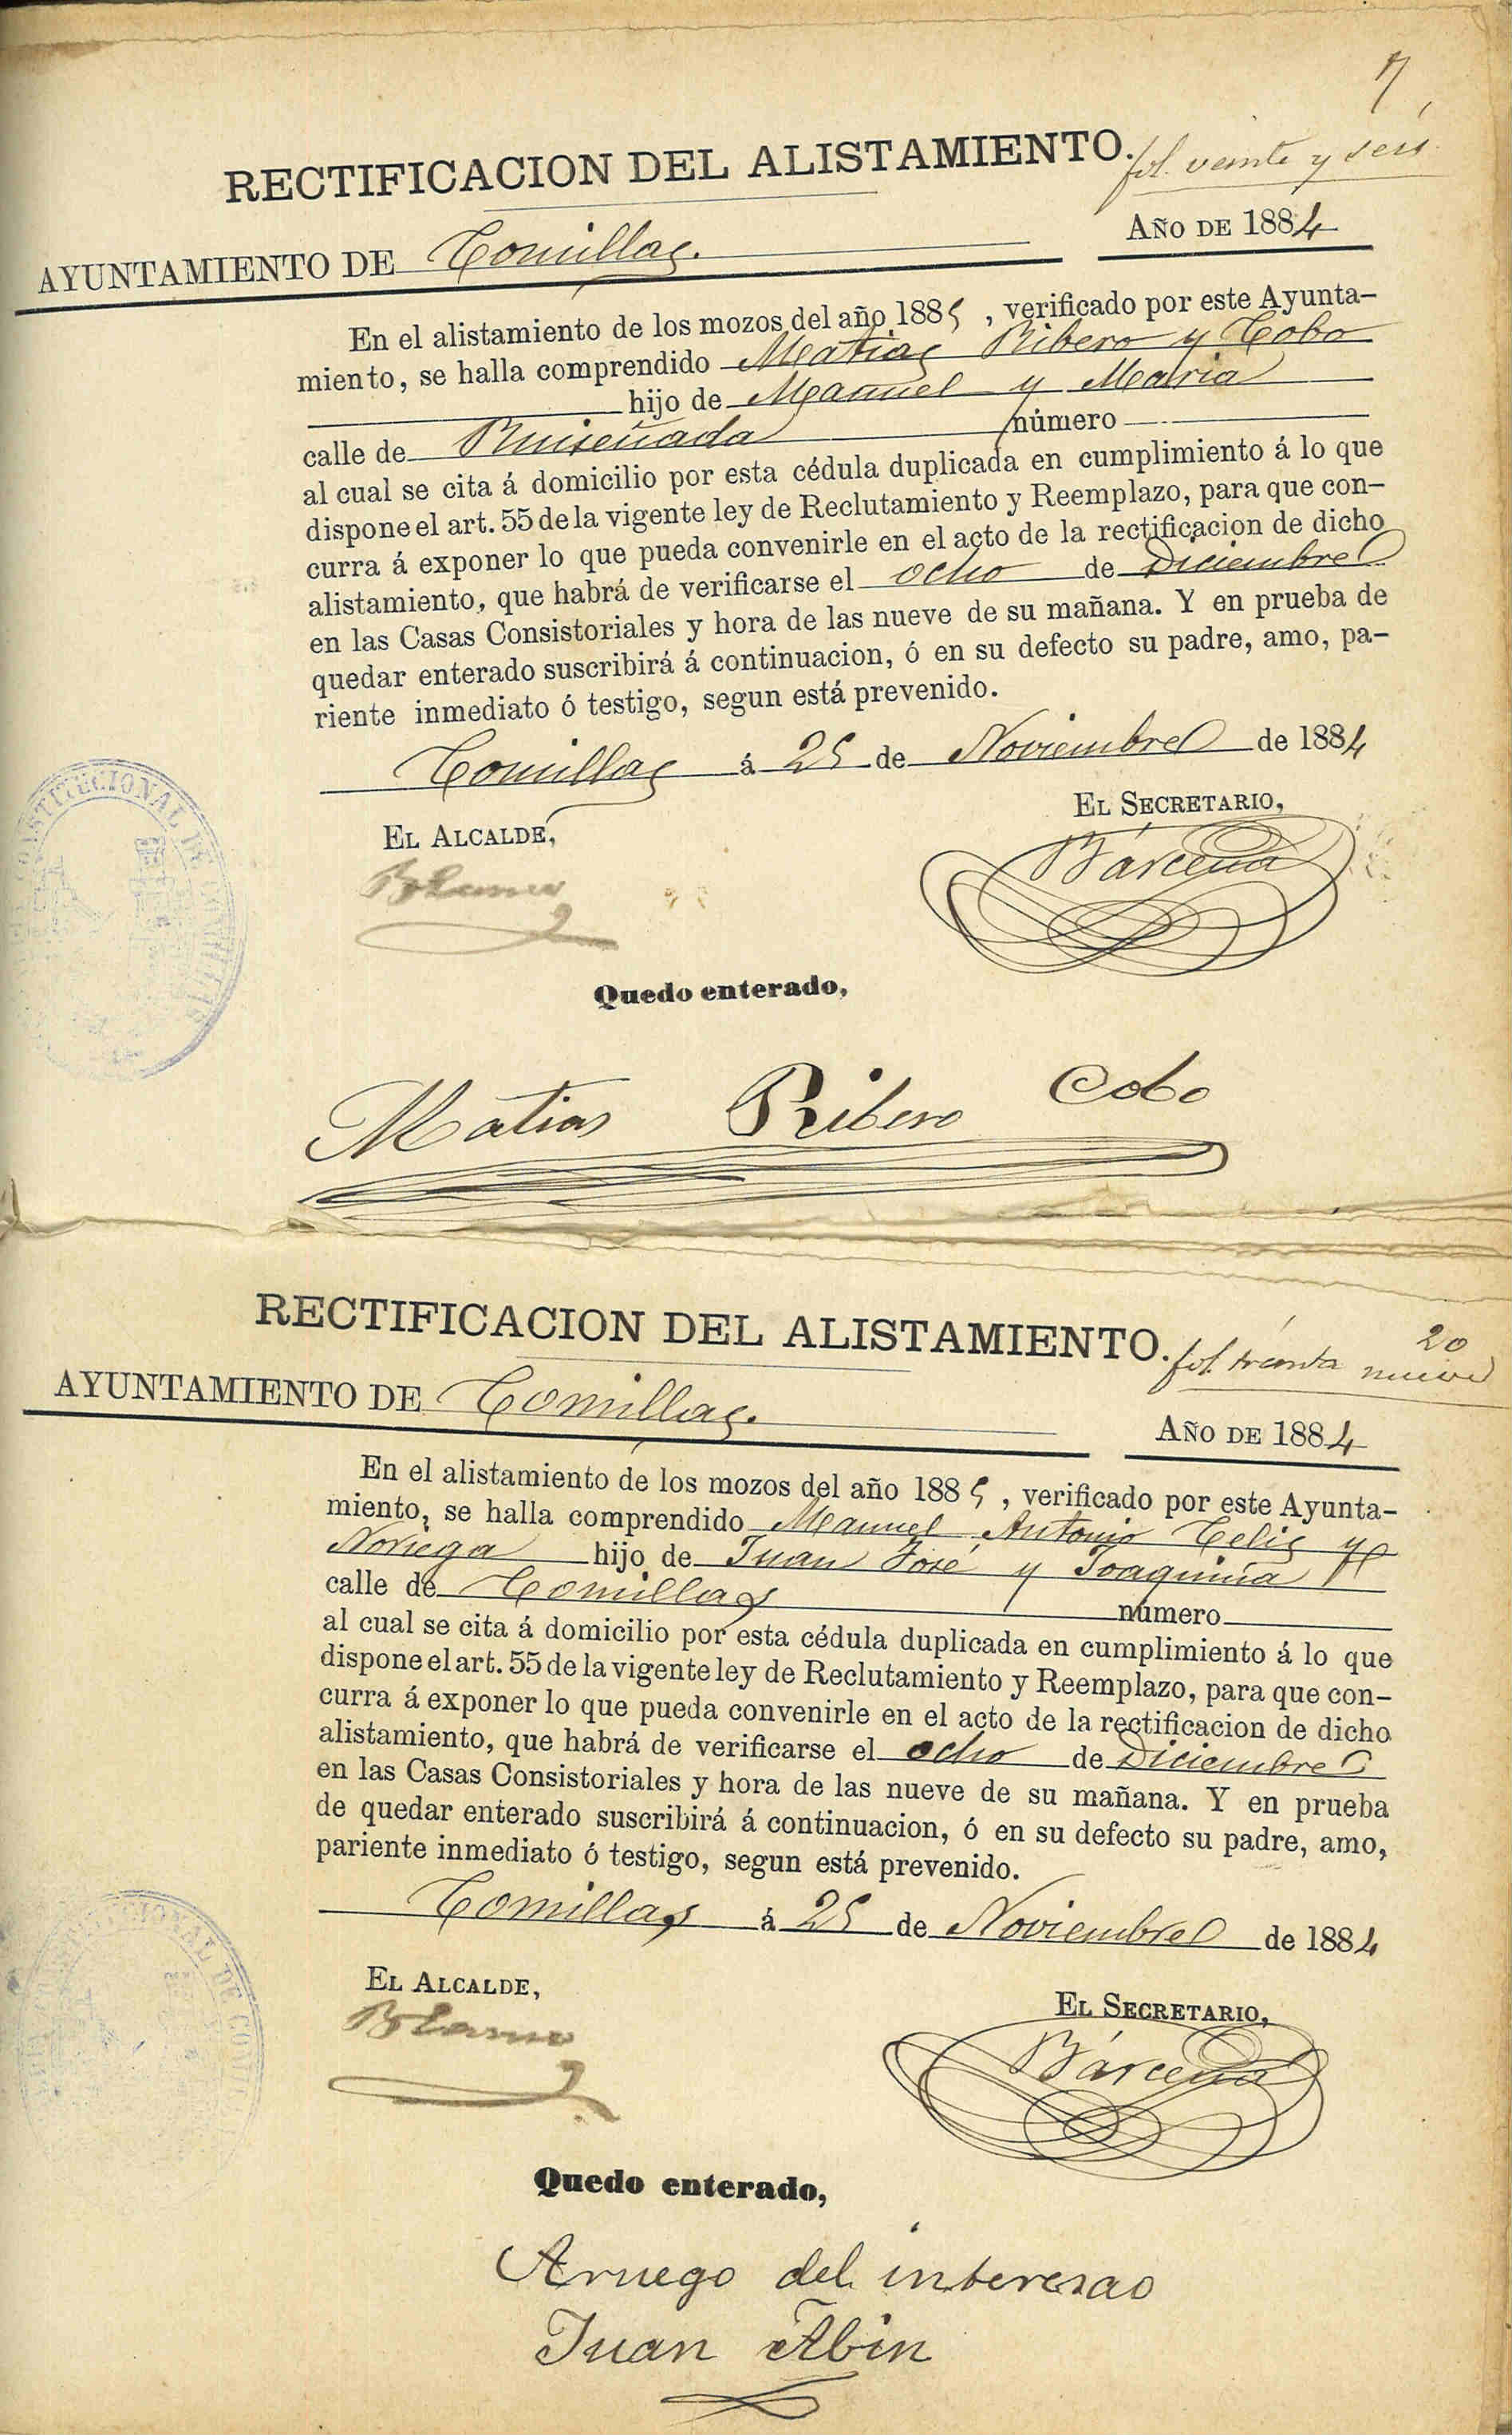 7
RECTIFICACION DEL ALISTAMIENTO. fol. veinte y seis
AYUNTAMIENTO DE Comillas. AÑO DE 1884
En el alistamiento de los mozos del año 1885, verificado por este Ayunta-
miento, se halla comprendido Matias Ribero y Cobo
hijo de Manuel y Maria
calle de Ruiseñada número
al cual se cita á domicilio por esta cédula duplicada en cumplimiento á lo que
dispone el art. 55 de la vigente ley de Reclutamiento y Reemplazo, para que con-
curra á exponer lo que pueda convenirle en el acto de la rectificacion de dicho
alistamiento, que habrá de verificarse el ocho de Diciembre
en las Casas Consistoriales y hora de las nueve de su mañana. Y en prueba de
quedar enterado suscribirá á continuacion, ó en su defecto su padre, amo, pa-
riente inmediato ó testigo, segun está prevenido.
Comillas á 25 de Noviembre de 1884
EL ALCALDE, EL SECRETARIO,
Bárcena
CONSTITUCIONAL DE COMILLAS
Quedo enterado,
Matias Ribero Cobo
20
RECTIFICACION DEL ALISTAMIENTO. fol. treinta nueve
AYUNTAMIENTO DE Comillas. AÑO DE 1884
En el alistamiento de los mozos del año 1885, verificado por este Ayunta-
miento, se halla comprendido Manuel Antonio Celis y
Noriega hijo de Juan José y Joaquina
calle de Comillas número
al cual se cita á domicilio por esta cédula duplicada en cumplimiento á lo que
dispone el art. 55 de la vigente ley de Reclutamiento y Reemplazo, para que con-
curra á exponer lo que pueda convenirle en el acto de la rectificacion de dicho
alistamiento, que habrá de verificarse el ocho de Diciembre
en las Casas Consistoriales y hora de las nueve de su mañana. Y en prueba
de quedar enterado suscribirá á continuacion, ó en su defecto su padre, amo,
pariente inmediato ó testigo, segun está prevenido.
Comillas á 25 de Noviembre de 1884
EL ALCALDE, EL SECRETARIO,
Bárcena
Quedo enterado,
Aruego del interesao
Juan Abin